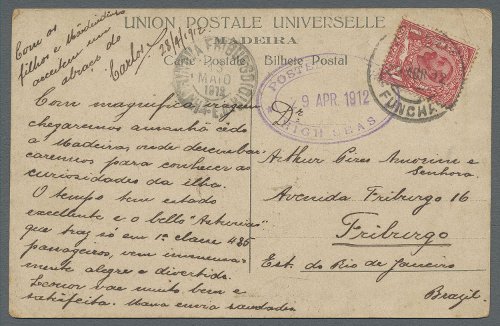 UNION POSTALE UNIVERSELLE
MADEIRA
Carte Postale Bilhete Postal
Com os
filhos e
aceitem um
abraço do
Carlos
28/4/912
NOVA FRIBURGO
MAIO
1912
POSTED
9 APR. 1912
HIGH SEAS
FUNCHAL
Com magnifica viagem
chegaremos amanhã cêdo
a Madeira, onde desembar-
caremos para conhecer as
curiosidades da ilha.
O tempo tem estado
excellente e o bello "Asturias"
que traz só em 1ª classe 485
passageiros, vem immensa-
mente alegre e divertido.
Leonor vae muito bem e
satisfeita. Mava envia saudades
Dr
Arthur Pires Amorim e
Senhora.
Avenida Friburgo 16
Friburgo
Est. do Rio de Janeiro
Brazil.